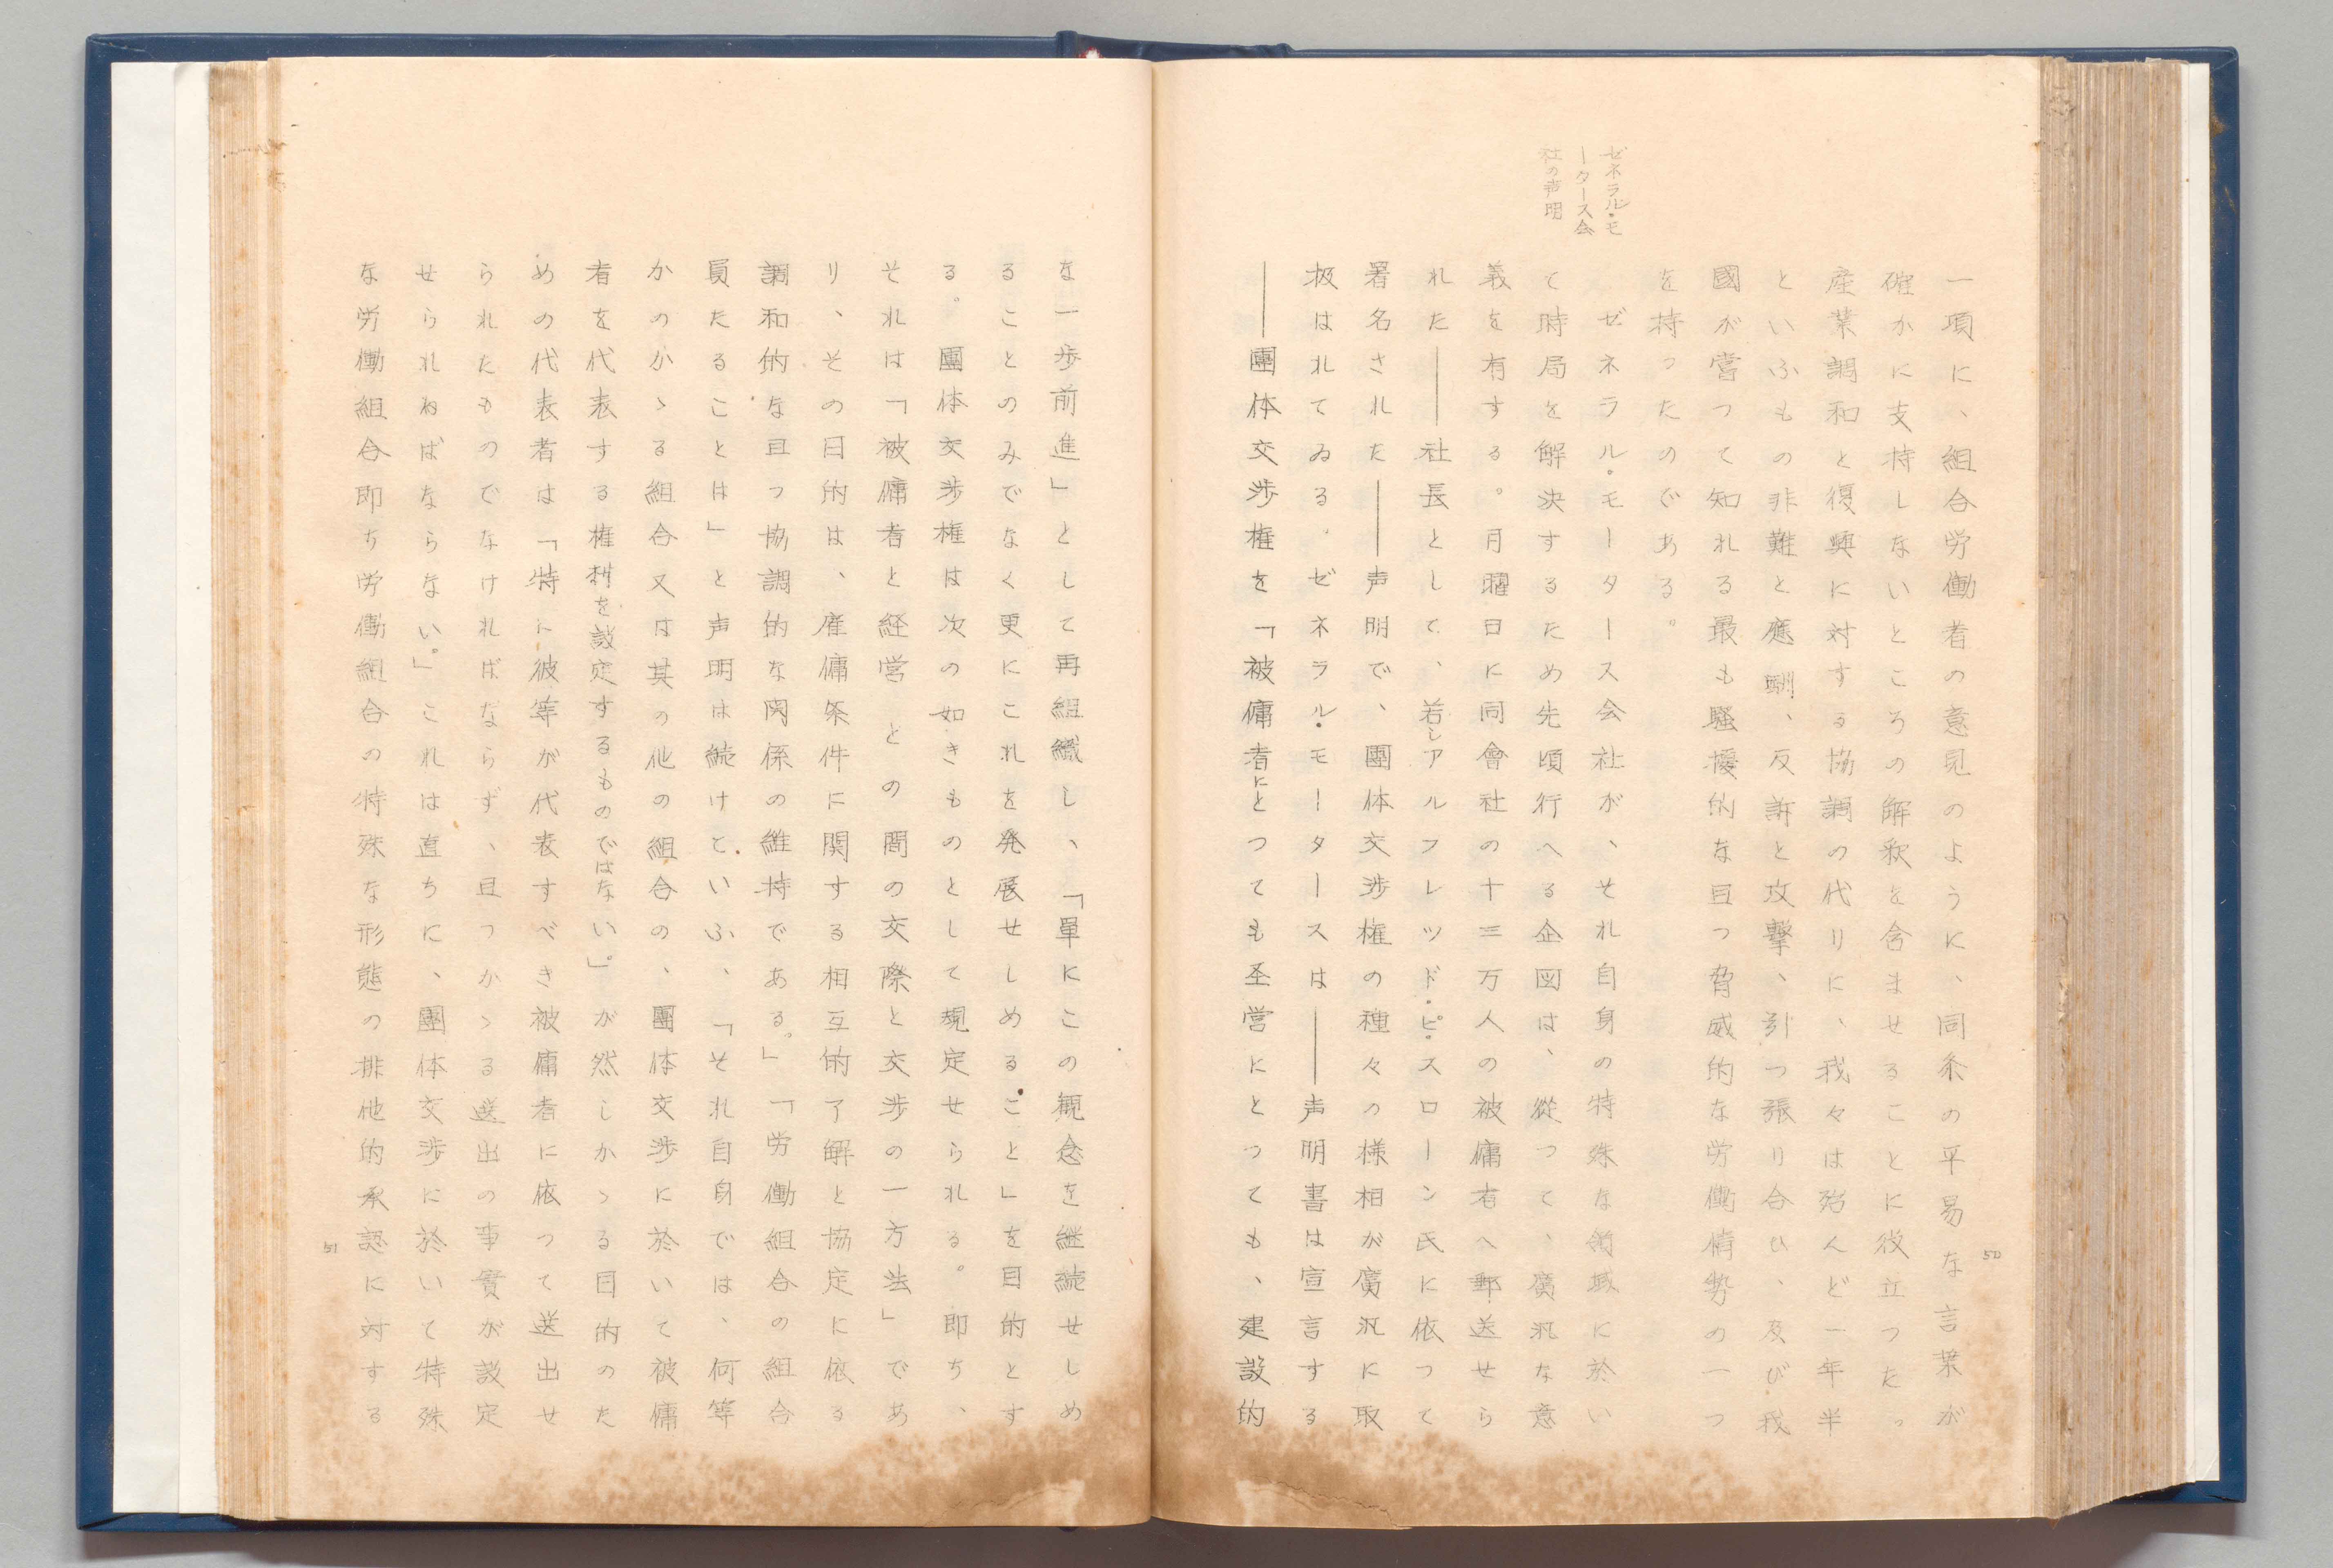 50
一項に、組合労働者の意見のように、同条の平易な言葉が
確かに支持しないところの解釈を含ませることに役立つたつ
産業調和と復興に対する協調の代りに、我々は殆んど一年半
といふもの非難と應酬、反訴と攻撃、引つ張り合ひ、及び我
國が嘗つて知れる最も騒擾的な且つ脅威的な労働情勢の一つ
を持つたのである。
ゼネラル・モ
ータース会
社の声明
ゼネラル・モータース会社が、それ自身の特殊な領域に於い
て時局を解決するため先頃行へる企図は、從つて、廣汎な意
義を有する。月曜日に同會社の十三万人の被庸者へ郵送せら
れた――社長として、若しアルフレッド・ピ・スローン氏に依つて
署名された――声明で、團体交渉権の種々の様相が廣汎に取
扱はれてゐる。ゼネラル・モータースは――声明書は宣言する
――團体交渉権を「被庸者にとつても圣営にとつても、建設的
な一歩前進」として再組織し、「單にこの観念を継続せしめ
ることのみでなく更にこれを発展せしめること」を目的とす
る。團体交渉権は次の如きものとして規定せられる。即ち、
それは「被庸者と経営との間の交際と交渉の一方法」であ
り、その目的は、雇庸条件に関する相互的了解と協定に依る
調和的な且つ協調的な関係の維持である。」「労働組合の組合
員たることは」と声明は続けていふ、「それ自身では、何等
かのかゝる組合又は其の他の組合の、團体交渉に於いて被庸
者を代表する権利を設定するものではない。」が然しかゝる目的のた
めの代表者は「特に彼等が代表すべき被庸者に依つて送出せ
られたものでなければならず、且つかゝる送出の事實が設定
せられねばならない。」これは直ちに、團体交渉に於いて特殊
な労働組合即ち労働組合の特殊な形態の排他的承認に対する
51